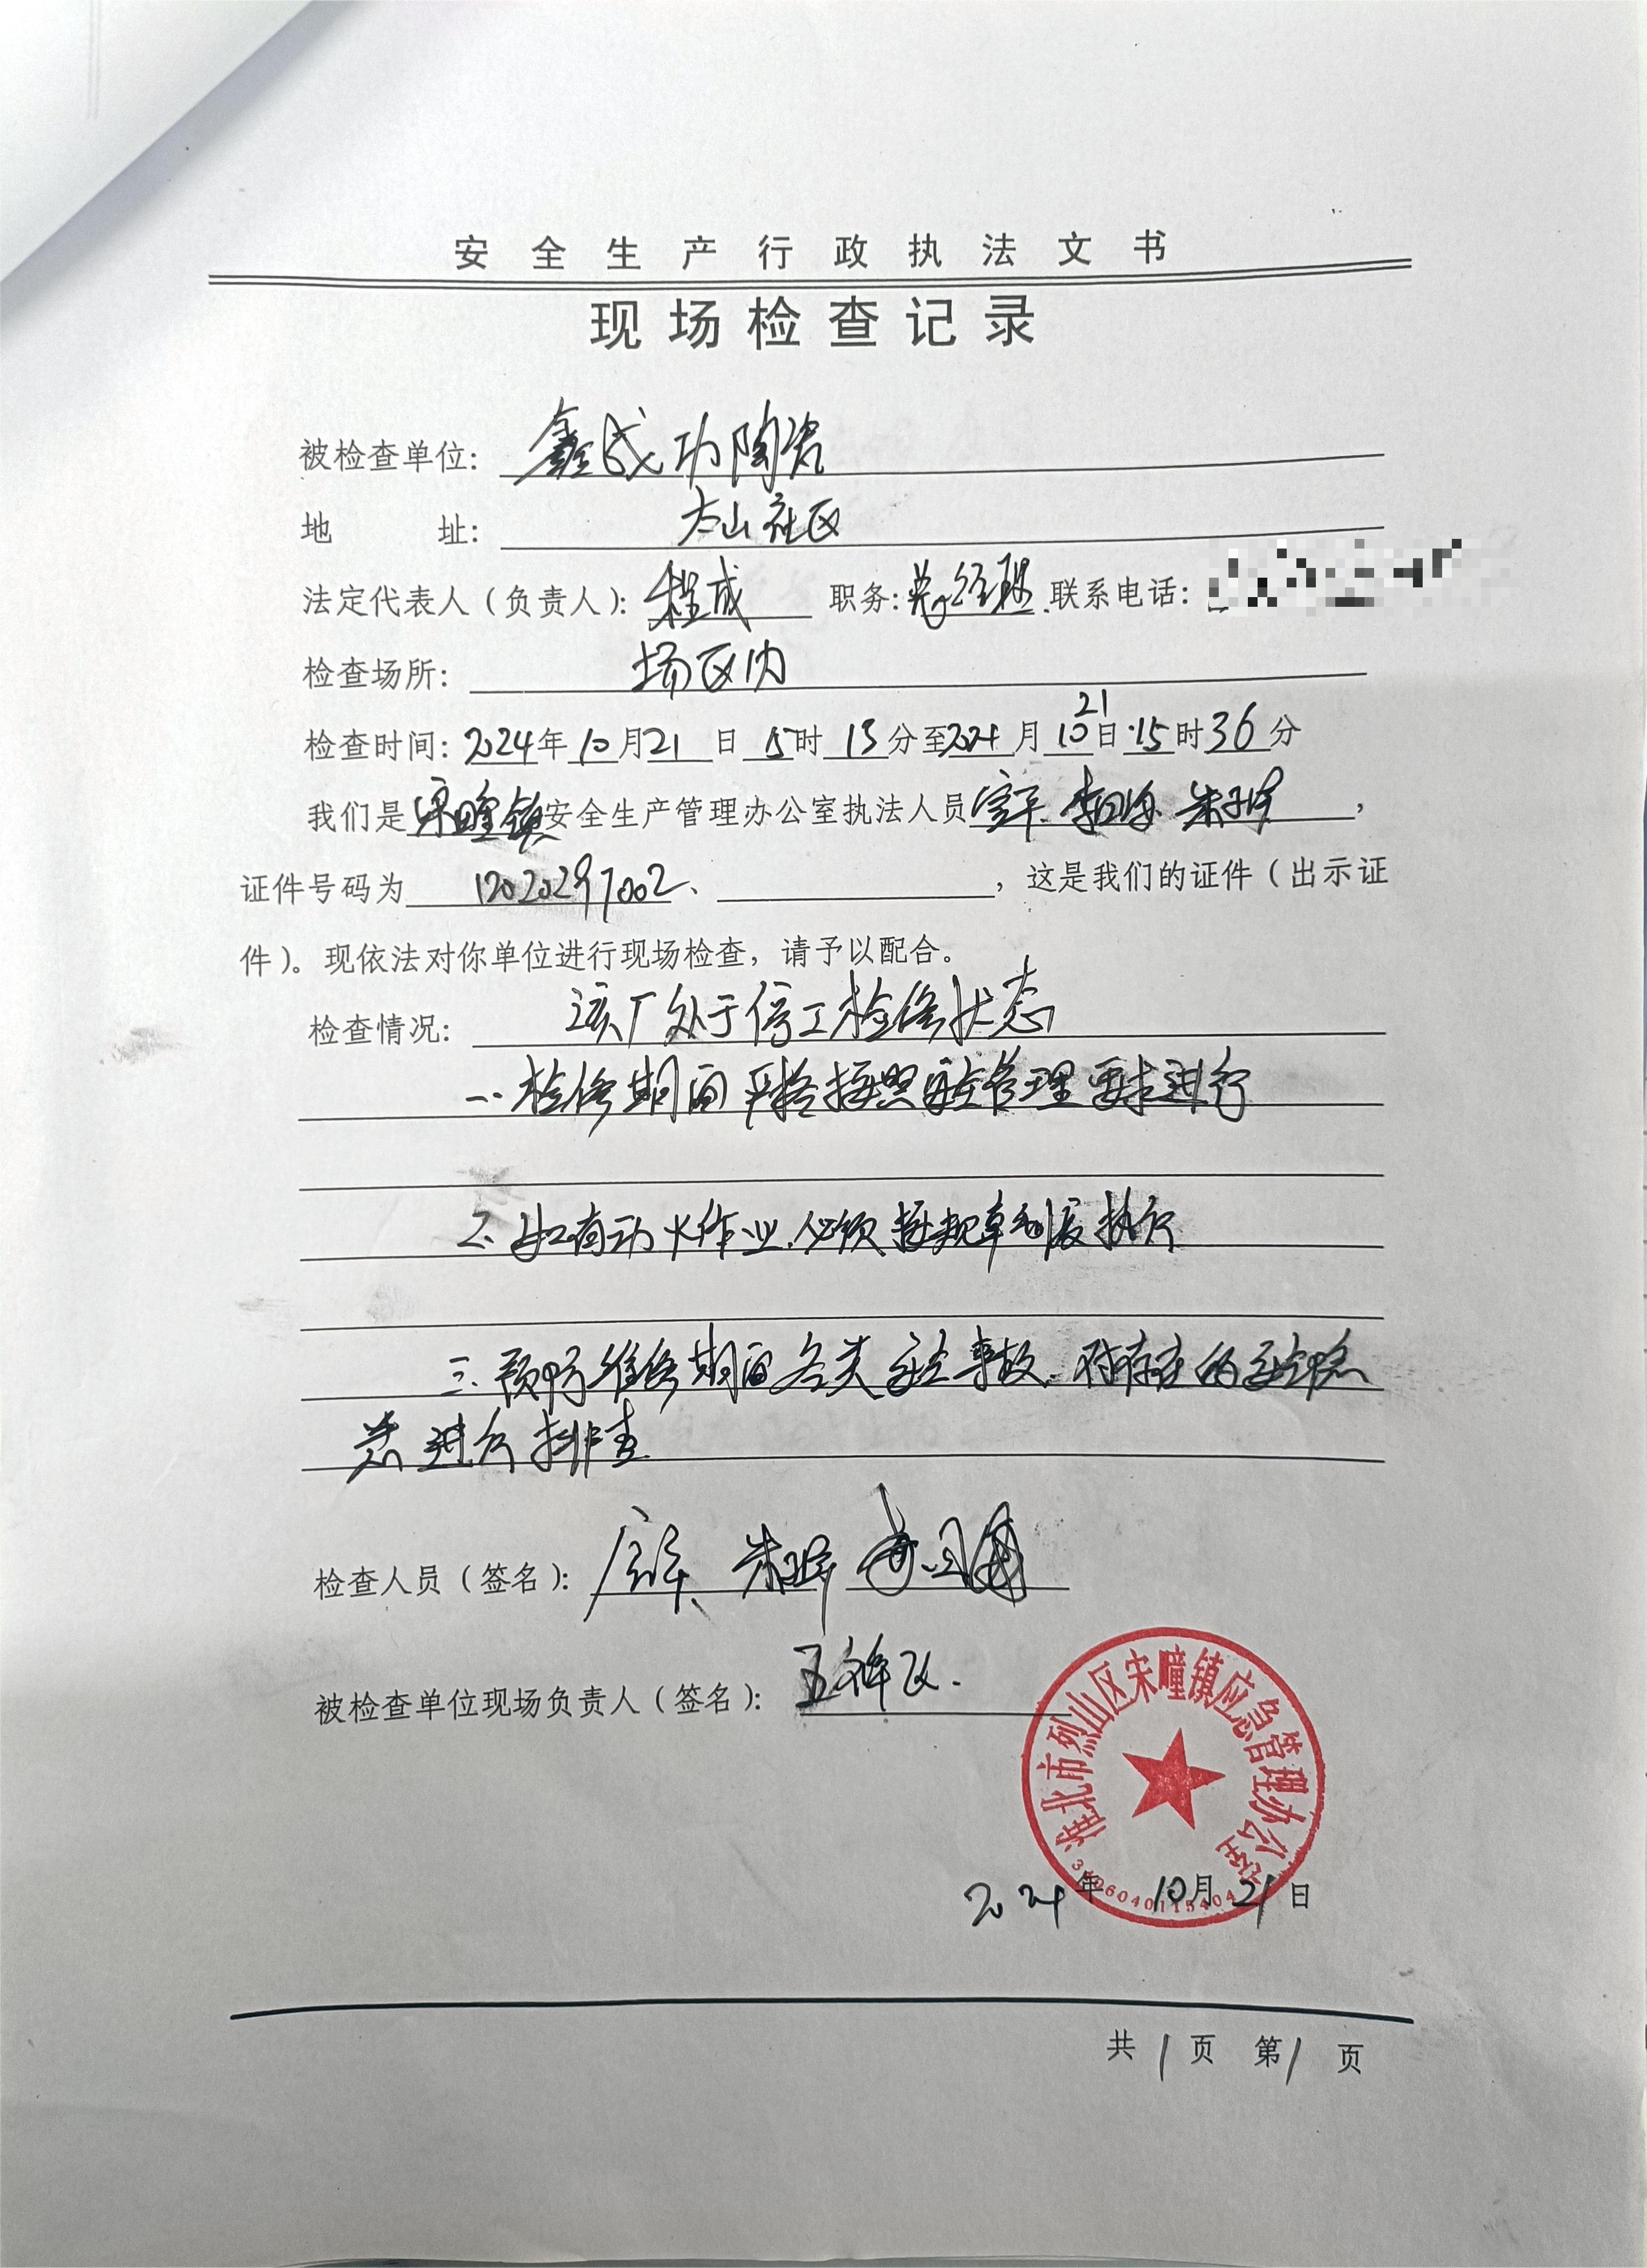 安全生产行政执法文书
现场检查记录
被检查单位: 鑫成功陶瓷
地 址: 太山社区
法定代表人(负责人): 程成 职务: 总经理 联系电话:
检查场所: 场区内
检查时间: 2024年10月21日15时13分至2024月10日15时36分
21
我们是宋疃镇安全生产管理办公室执法人员
证件号码为 12020297002、 ,这是我们的证件(出示证
件)。现依法对你单位进行现场检查,请予以配合。
检查情况: 该厂处于停工检修状态
一.检修期间严格按照安全管理要求进行
2.如有动火作业.必须按规章制度执行
三.预防维修期间各类安全事故.对存在的安全隐
患进行排查
检查人员(签名):
被检查单位现场负责人(签名):
淮北市烈山区宋疃镇应急管理办公室
2024年10月21日
共1页 第1页